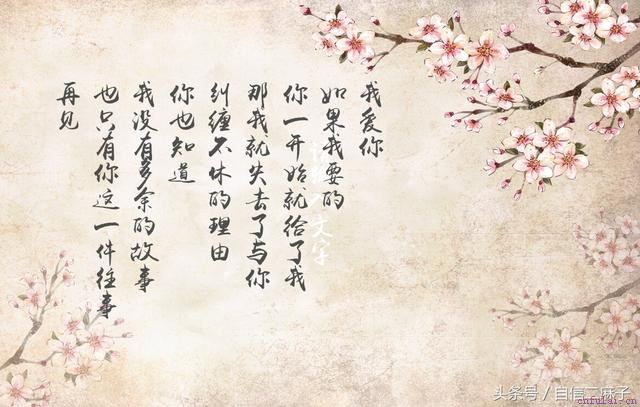 我爱你
如果我要的
你一开始就给了我
那我就失去了与你
纠缠不休的理由
你也知道
我没有多余的故事
也只有你这一件往事
再见
头条号／自信二麻子
cnfulai.cn